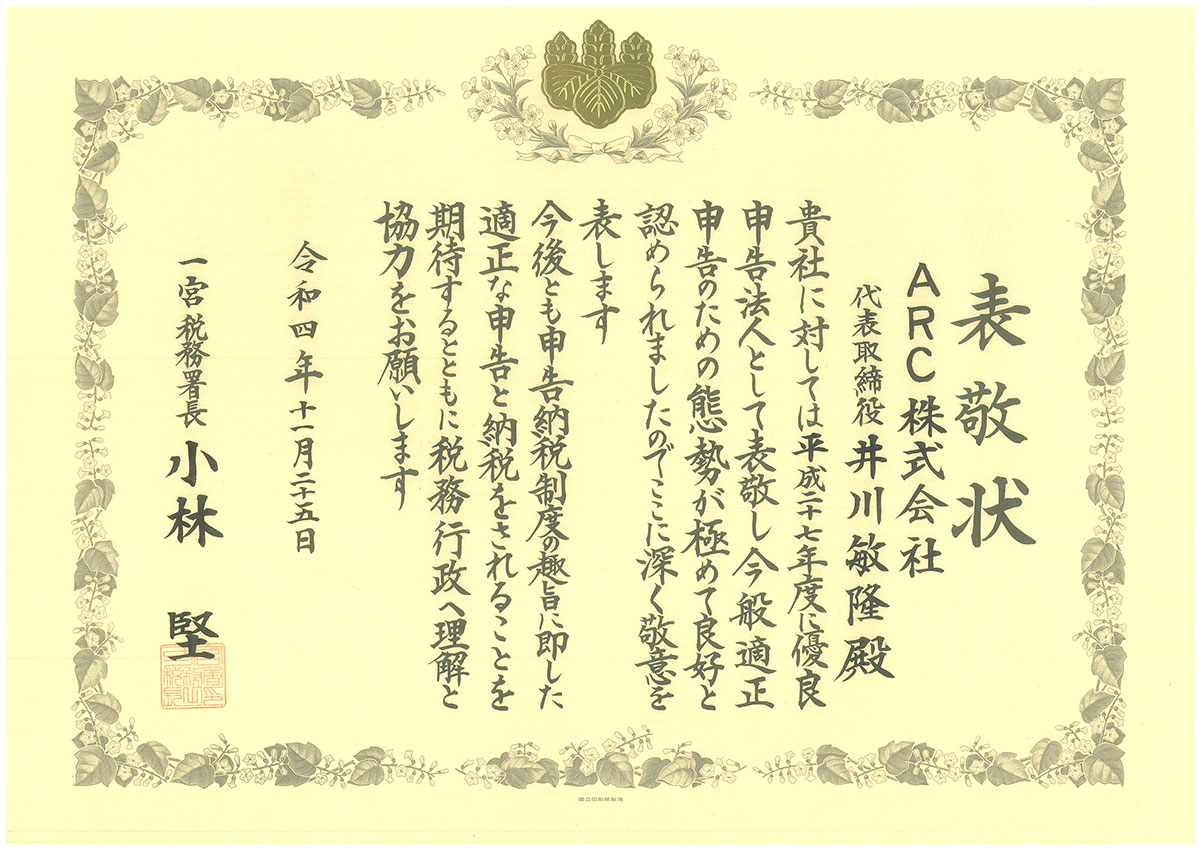 表敬状
ARC株式会社
代表取締役 井川敏隆殿
貴社に対しては平成二十七年度に優良
申告法人として表敬し今般適正
申告のための態勢が極めて良好と
認められましたのでここに深く敬意を
表します
今後とも申告納税制度の趣旨に即した
適正な申告と納税をされることを
期待するとともに税務行政へ理解と
協力をお願いします
令和四年十一月二十五日
一宮税務署長 小林 堅
国立印刷局製造